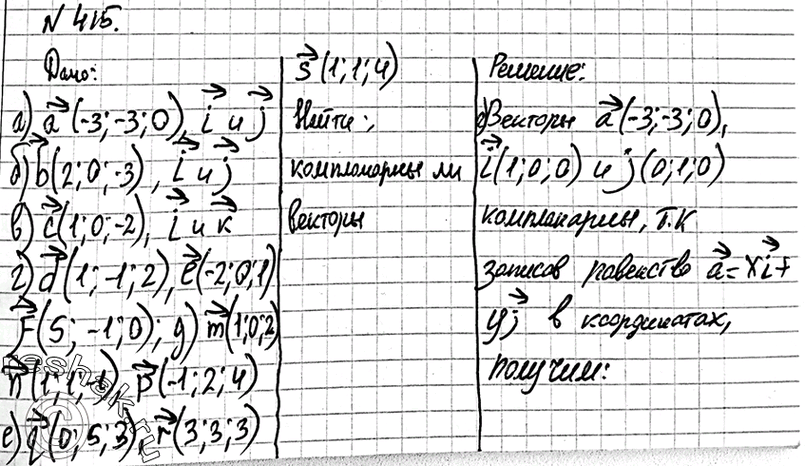 N 415.
Дано:
а) a (-3; -3; 0), i и j
б) b (2; 0; -3), i и j
в) c (1; 0; -2), i и k
г) d (1; -1; 2), e (-2; 0; 1)
f (5; -1; 0); д) m (1; 0; 2)
n (1; 1; -1) p (-1; 2; 4)
е) q (0; 5; 3), r (3; 3; 3)
s (1; 1; 4)
Найти:
компланарны ли
векторы
Решение:
а) Векторы a (-3; -3; 0),
i (1; 0; 0) и j (0; 1; 0)
компланарны, т.к
записав равенство a = xi +
yj в координатах,
получим:
reshak.ru